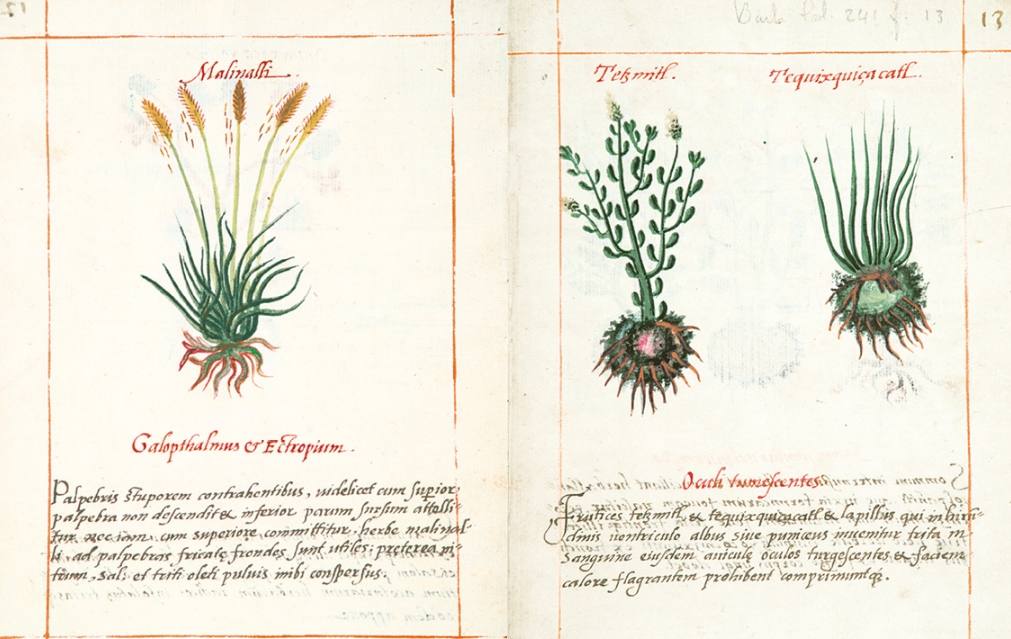 Barb. Lat. 241 f. 13
13
Malinalli.
Galopthalmus & Ectropium.
Palpebris stuporem contrahentibus, uidelicet cum superior
palpebra non descendit & inferior parum sursum attolli-
tur nec iam cum superiore committitur, herbe malinal-
li, ad palpebras fricate frondes sunt utiles: preterea ni-
trum, sal, et triti oleti puluis inibi conspersus.
Tetzmitl. Tequixquiçacatl.
Oculi tumescentes
Frutices tetzmitl, & tequixquiçacatl & lapillus qui in hirun-
dinis uentriculo albus siue puniceus inuenitur trita in
sanguine eiusdem auicule oculos turgescentes & faciem
calore flagrantem prohibent comprimuntq;.